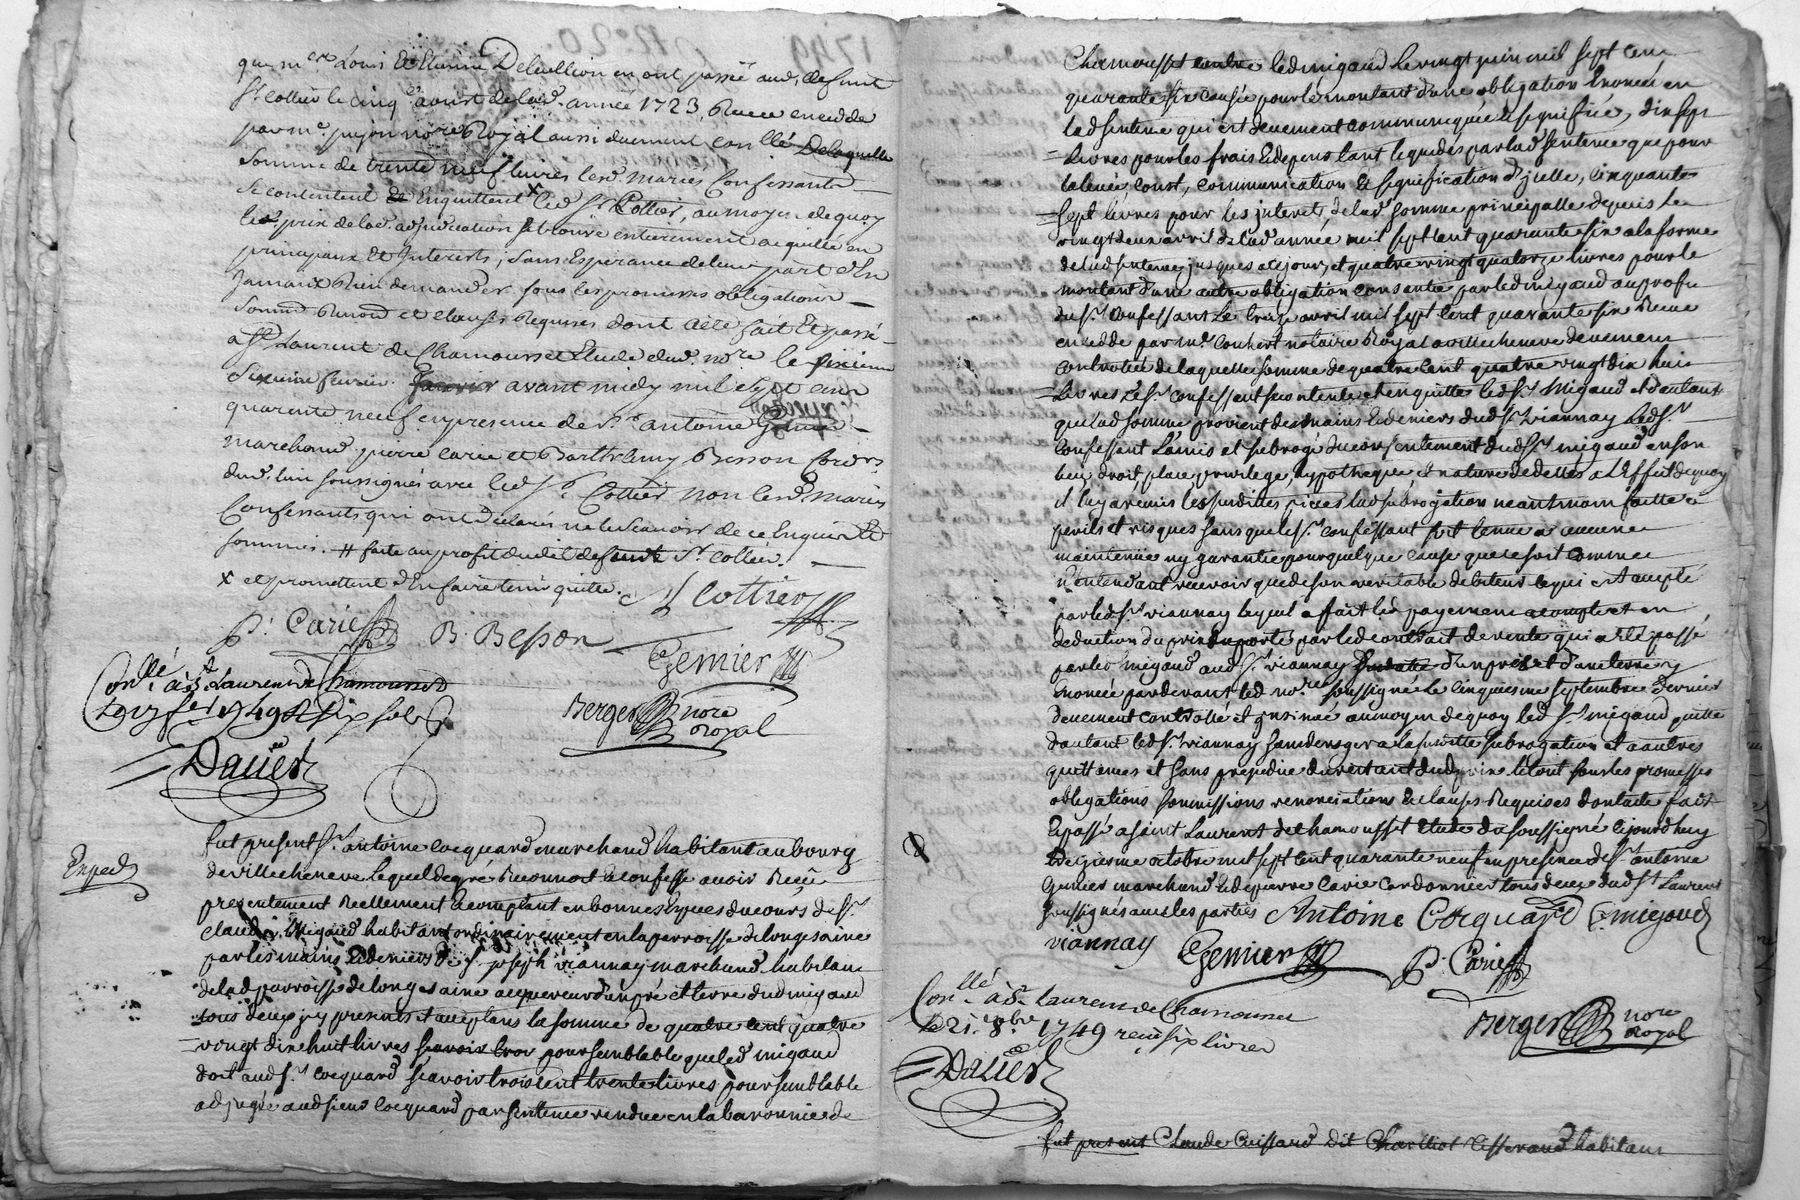 que m.re Louis et Etienne Delullion en ont passée aud. defunt
Sr Cottier le cinq d'aoust de lad. année 1723, Receu en cedde
par me pujon no.re Royal aussi duement con.llé De laquelle
somme de trente neuf livres lesd. mariés Confessants
se contentent et Enquittent x led Sr Cottier, au moyen de quoy
le prix de lad. adjudication se trouve entierement acquitté en
principaux et Interests, sans Esperance de leur part d'En
Jamais Rien demander sous les promesses obligations
Soum.ns Renon.ons et clauses Requises dont acte fait Et passé
a St Laurent de Chamousset Etude dud. no.re le
Sixieme fevrier avant midy mil Sept cent
quarente neuf en presence de Sr antoine Gemier
marchand, pierre carie et Barthelemy Besson Cord.rs
dud. lieu soussignés avec led Sr Cottier non lesd. mariés
Confessants qui ont declarés ne le scavoir de ce Enquis Et
sommés. # faite au profit dudit defunt Sr Cottier.
x et promettent d'En faire tenir quitte.
Cottier
P. Carie B. Besson Gemier
Con.llé a St Laurent de Chamousset
le 17 fer 1749 R six sols
Berger no.re royal
Dauier
Exped
fut present Sr antoine Cocquard marchand habitant au bourg
de villecheneve lequel de gré Reconnoit et confesse avoir Receu
presentement Reellement et comptant en bonnes especes du cours de Sr
Claude Migaud habitant ordinairement en la parroisse de longesaine
par les mains Et deniers de Sr joseph viannay marchand habitant
de lad parroisse de longesaine acquereur d'un pré et terre dud migaud
tous deux icy presents et acceptans la somme de quatre cent quatre
vingt dix huit livres pour semblable que led migaud
doit aud Sr Cocquard scavoir trois cent trente livres pour semblable
adjugée aud sieur Cocquard par sentence rendue en la baronnie de
Chamousset contre led migaud le vingt juin mil sept cent
quarante six causée pour le montant d'une obligation Enoncé en
lad sentence qui est deuement communiquée et signifiée, dix sept
livres pour les frais Et depens tant liquidés par lad sentence que pour
la levée, communication Et signification d'jcelle, cinquante
sept livres pour les jnterets de lad somme principalle depuis le
vingt deux avril de lad année mil sept cent quarante six a la forme
de lad sentence jusques a ce jour, et quatre vingt quatorze livres pour le
montant d'une autre obligation consentie par led migaud au profit
dud Sr Confessant le treize avril mil sept cent quarante six Receue
en cedde par me notaire Royal a villecheneve deuement
controllée de laquelle somme de quatre cent quatre vingt dix huit
livres led Sr confessant se contente et en quitte led Sr Migaud et d'autant
que lad somme provient des mains Et deniers dud Sr viannay led Sr
Confessant l'a mis et subrogé du consentement dud Sr migaud en son
lieu, droit, place, privilege, hypotheque et nature de dettes a l'Effet de quoy
il luy a remis les susdittes pieces lad subrogation neantmoins faitte a
perils et risques sans que led Sr confessant soit tenu a aucune
maintenüe ny garantie pour quelque cause que ce soit comme
n'entendant recevoir que de son veritable debiteur ce qui est accepté
par led Sr viannay lequel a fait led payement a compte et en
deduction du prix porté par led contrait de vente qui a été passé
par led migaud aud Sr viannay d'un pré et d'une terre y
Enoncé pardevant led no.re soussigné le cinquiesme septembre dernier
deuement controllé et jnsinué au moyen de quoy led Sr migaud quitte
d'autant led Sr viannay sans deroger a la susditte subrogation et a autres
quittances et sans prejudice du restant dud prix le tout sous les promesses
obligations soumissions renonciations Et clauses Requises dont acte fait
Et passé a saint Laurent de chamousset Etude du soussigné cejourdhuy
octobre mil sept cent quarante neuf en presence de Sr antoine
Gemier marchand Et de pierre Carie Cordonnier tous deux dud St Laurent
soussignés avec les parties Antoine Cocquard C. migaud
viannay Gemier P. Carie
Con.llé a St Laurent de Chamousset
le 21 8bre 1749 receu six livres
Berger no.re royal
Dauier
fut present Claude Cuissard dit Charliot tisserand habitant